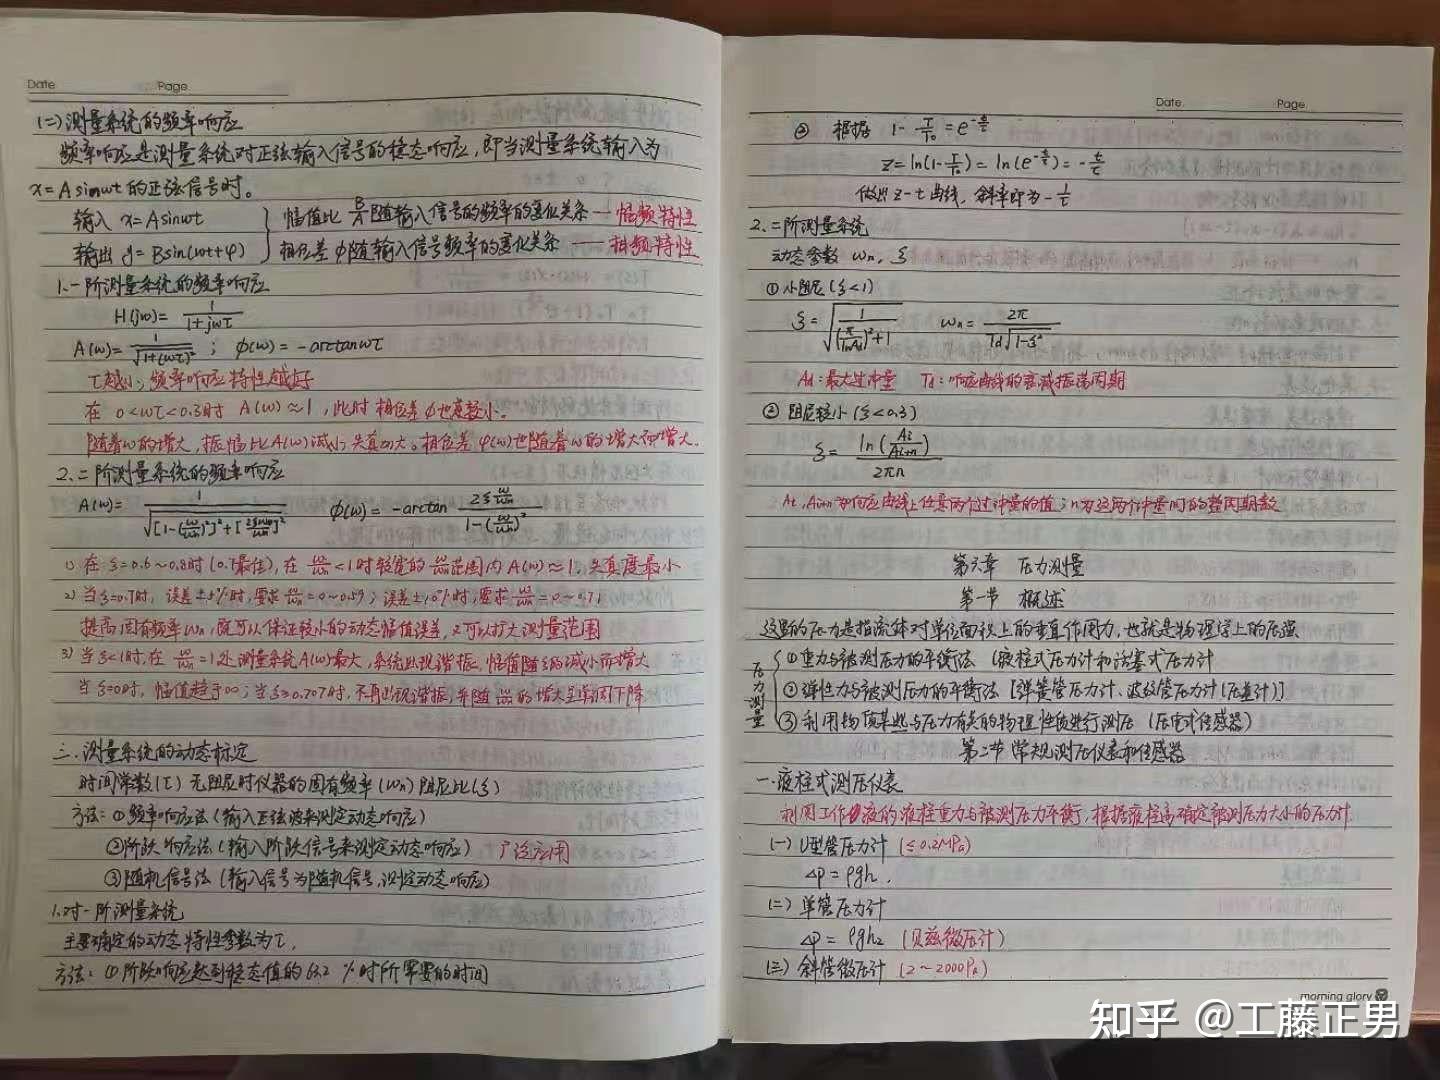 Date Page
(二)测量系统的频率响应
频率响应是测量系统对正弦输入信号的稳态响应,即当测量系统输入为
x=Asinωt的正弦信号时。
输入 x=Asinωt } 幅值比 B/A 随输入信号的频率的变化关系 — 幅频特性
输出 y=Bsin(ωt+φ) } 相位差 φ随输入信号频率的变化关系 — 相频特性
1.一阶测量系统的频率响应
H(jω)= 1/(1+jωτ)
A(ω)= 1/√(1+(ωτ)²) ; φ(ω)= -arctanωτ
τ越小,频率响应特性越好
在 0<ωτ<0.3时 A(ω)≈1,此时相位差φ也较小。
随着ω的增大,振幅比A(ω)减小,失真加大。相位差φ(ω)也随着ω的增大而增大.
2.二阶测量系统的频率响应
A(ω)= 1/√([1-(ω/ωn)²]²+[2ξω/ωn]²) φ(ω)= -arctan (2ξω/ωn)/(1-(ω/ωn)²)
1) 在ξ=0.6~0.8时(0.7最佳),在 ω/ωn<1时较宽的ω/ωn范围内A(ω)≈1,失真度最小
2) 当ξ=0.7时,误差±5%时,要求ω/ωn=0~0.59;误差±10%时,要求ω/ωn=0~0.71
提高固有频率ωn,既可以保证较小的动态幅值误差,又可以扩大测量范围
3) 当ξ<1时,在ω/ωn=1处,测量系统A(ω)最大,系统出现谐振,幅值随ξ的减小而增大
当ξ=0时,幅值趋于∞;当ξ≥0.707时,不再出现谐振,并随ω/ωn的增大呈单调下降
三.测量系统的动态标定
时间常数(τ) 无阻尼时仪器的固有频率(ωn)阻尼比(ξ)
方法:①频率响应法(输入正弦波来测定动态响应)
②阶跃响应法(输入阶跃信号来测定动态响应) 广泛应用
③随机信号法(输入信号为随机信号,测定动态响应)
1.对一阶测量系统
主要确定的动态特性参数为τ,
方法:①阶跃响应达到稳态值的63.2%时所需要的时间
Date Page
② 根据 1-T/T₀=e^(-t/τ)
z=ln(1-T/T₀)=ln(e^(-t/τ))=-t/τ
作出z-t曲线,斜率即为-1/τ
2.二阶测量系统
动态参数 ωn,ξ
①小阻尼(ξ<1)
ξ=√(1/((π/lnAd)²+1)) ωn=2π/(Td√(1-ξ²))
Ad:最大过冲量 Td:响应曲线的衰减振荡周期
②阻尼较小(ξ<0.3)
ξ=ln(Ai/Ai+n)/(2πn)
Ai,Ai+n为响应曲线上任意两个过冲量的值;n为这两个冲量间的整周期数
第六章 压力测量
第一节 概述
这里的压力是指流体对单位面积上的垂直作用力,也就是物理学上的压强
压力测量 { ①重力与被测压力的平衡法(液柱式压力计和活塞式压力计
②弹性力与被测压力的平衡法[弹簧管压力计、波纹管压力计(压差计)]
③利用物质某些与压力有关的物理性质进行测压(压电式传感器)
第二节 常规测压仪表和传感器
一.液柱式测压仪表
利用工作液的液柱重力与被测压力平衡,根据液柱高确定被测压力大小的压力计
(一) U型管压力计(≤0.2MPa)
Δp=ρgh.
(二) 单管压力计
Δp=ρgh₂ (贝兹微压计)
(三) 斜管微压计(2~2000Pa)
morning glory
知乎 @工藤正男